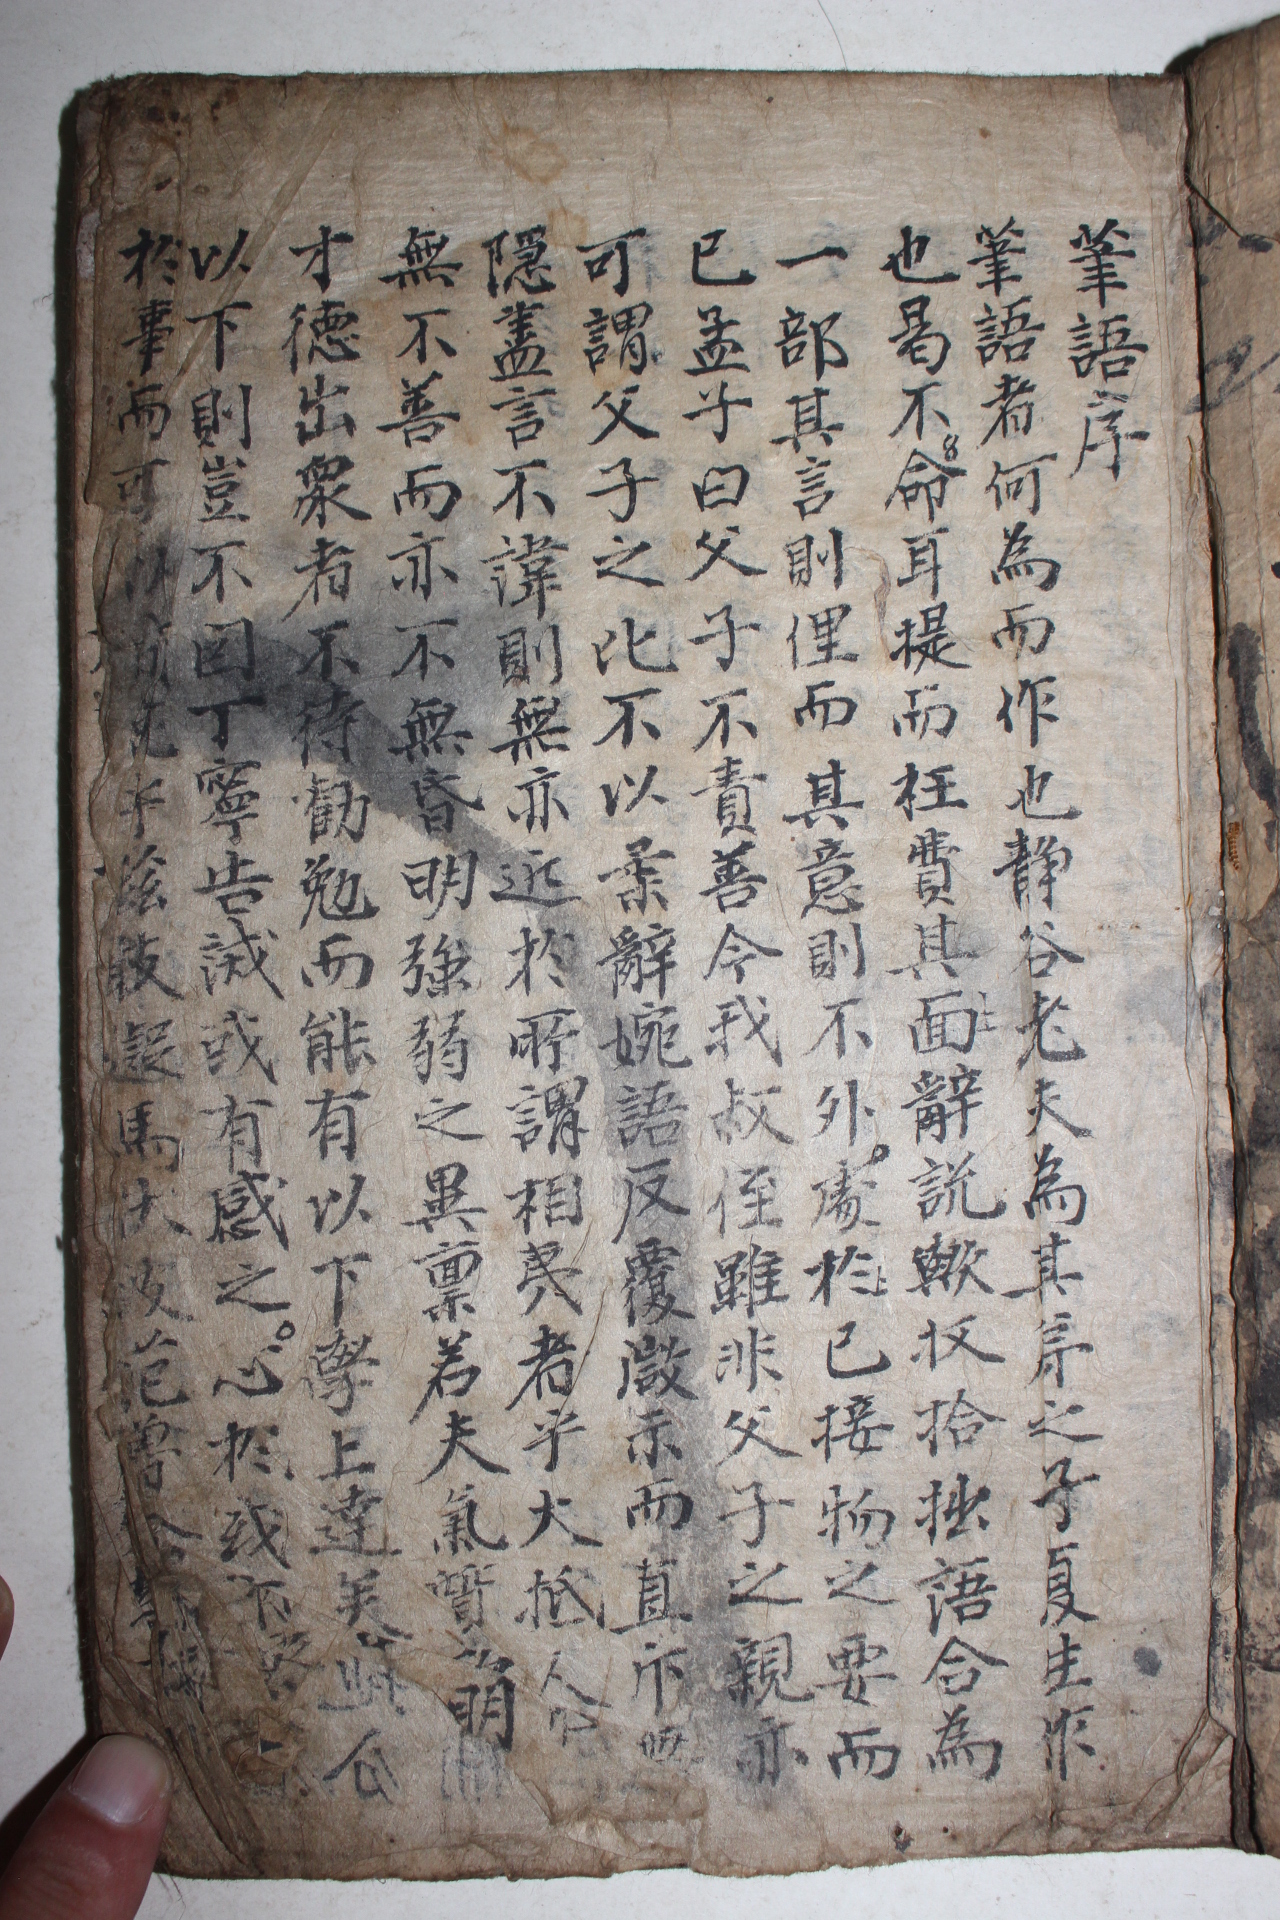 筆語序
筆語者何為而作也靜谷老夫為其宗之子夏生作
也曷不命耳提而枉費其面辭說輙收拾拙語合為
一部其言則俚而其意則不外處於已接物之要而
已孟子曰父子不責善今我叔侄雖非父子之親亦
可謂父子之比不以柔辭婉語反覆啟示而直斥無
隱盡言不諱則無亦近於所謂相夷者乎大抵人
無不善而亦不無昏明強弱之異稟若夫氣質明
才德出衆者不待勸勉而能有以下學上達矣此公
以下則豈不因丁寧告誡或有感之心於或下
於事而可乎玆敢疑馬大范魯公